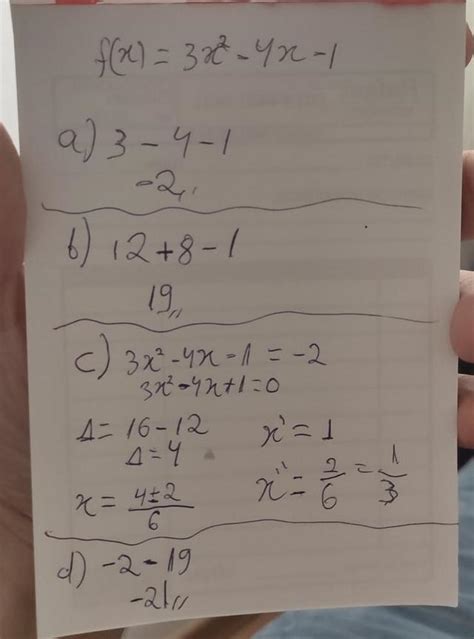 f(x) = 3x² - 4x - 1
a) 3 - 4 - 1
-2,,
b) 12 + 8 - 1
19,,
c) 3x² - 4x - 1 = -2
3x² - 4x + 1 = 0
Δ = 16 - 12
Δ = 4
x' = 1
x = 4±2/6
x'' = 2/6 = 1/3
d) -2 - 19
-21,,